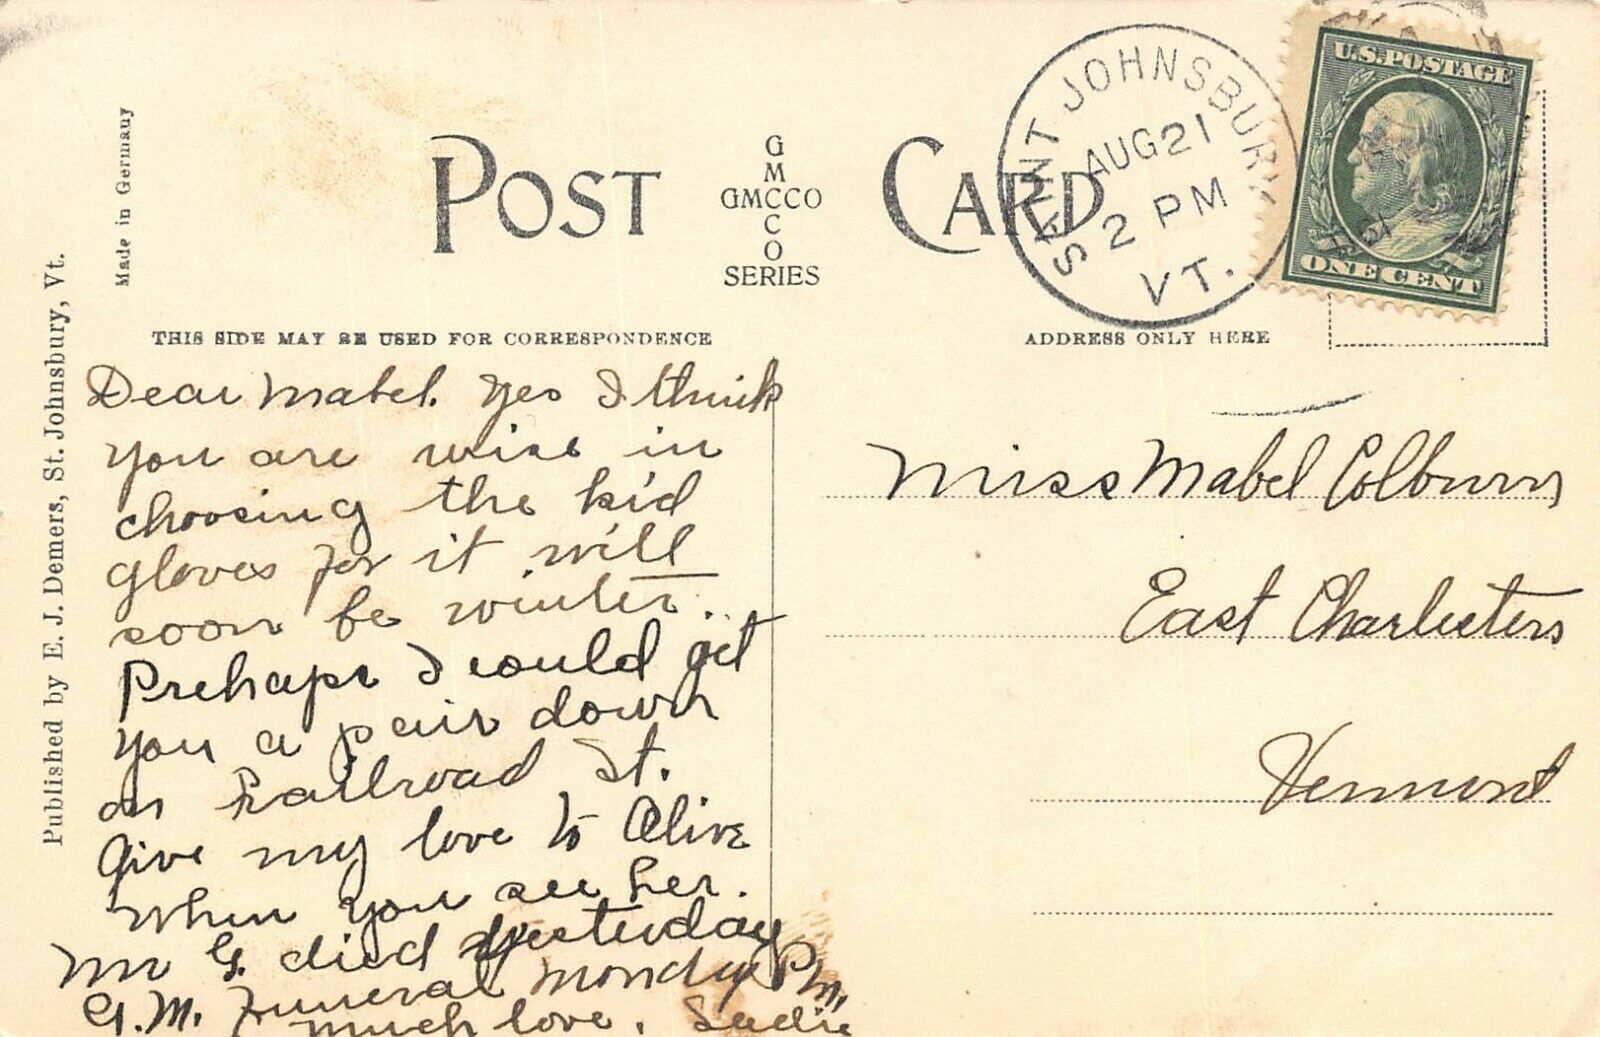 POST CARD
G
M
GMCCO
C
O
SERIES
SAINT JOHNSBURY
AUG 21
2 PM
VT.
U.S. POSTAGE
ONE CENT
Made in Germany
Published by E. J. Demers, St. Johnsbury, Vt.
THIS SIDE MAY BE USED FOR CORRESPONDENCE
ADDRESS ONLY HERE
Dear Mabel. Yes I think
you are wise in
choosing the kid
gloves for it will
soon be winter.
Prehaps I could get
you a pair down
on Railroad St.
Give my love to Olive
when you see her.
Mr G. died yesterday
G.M. Funeral Monday P.M.
much love. Sadie
Miss Mabel Colburn
East Charleston
Vermont